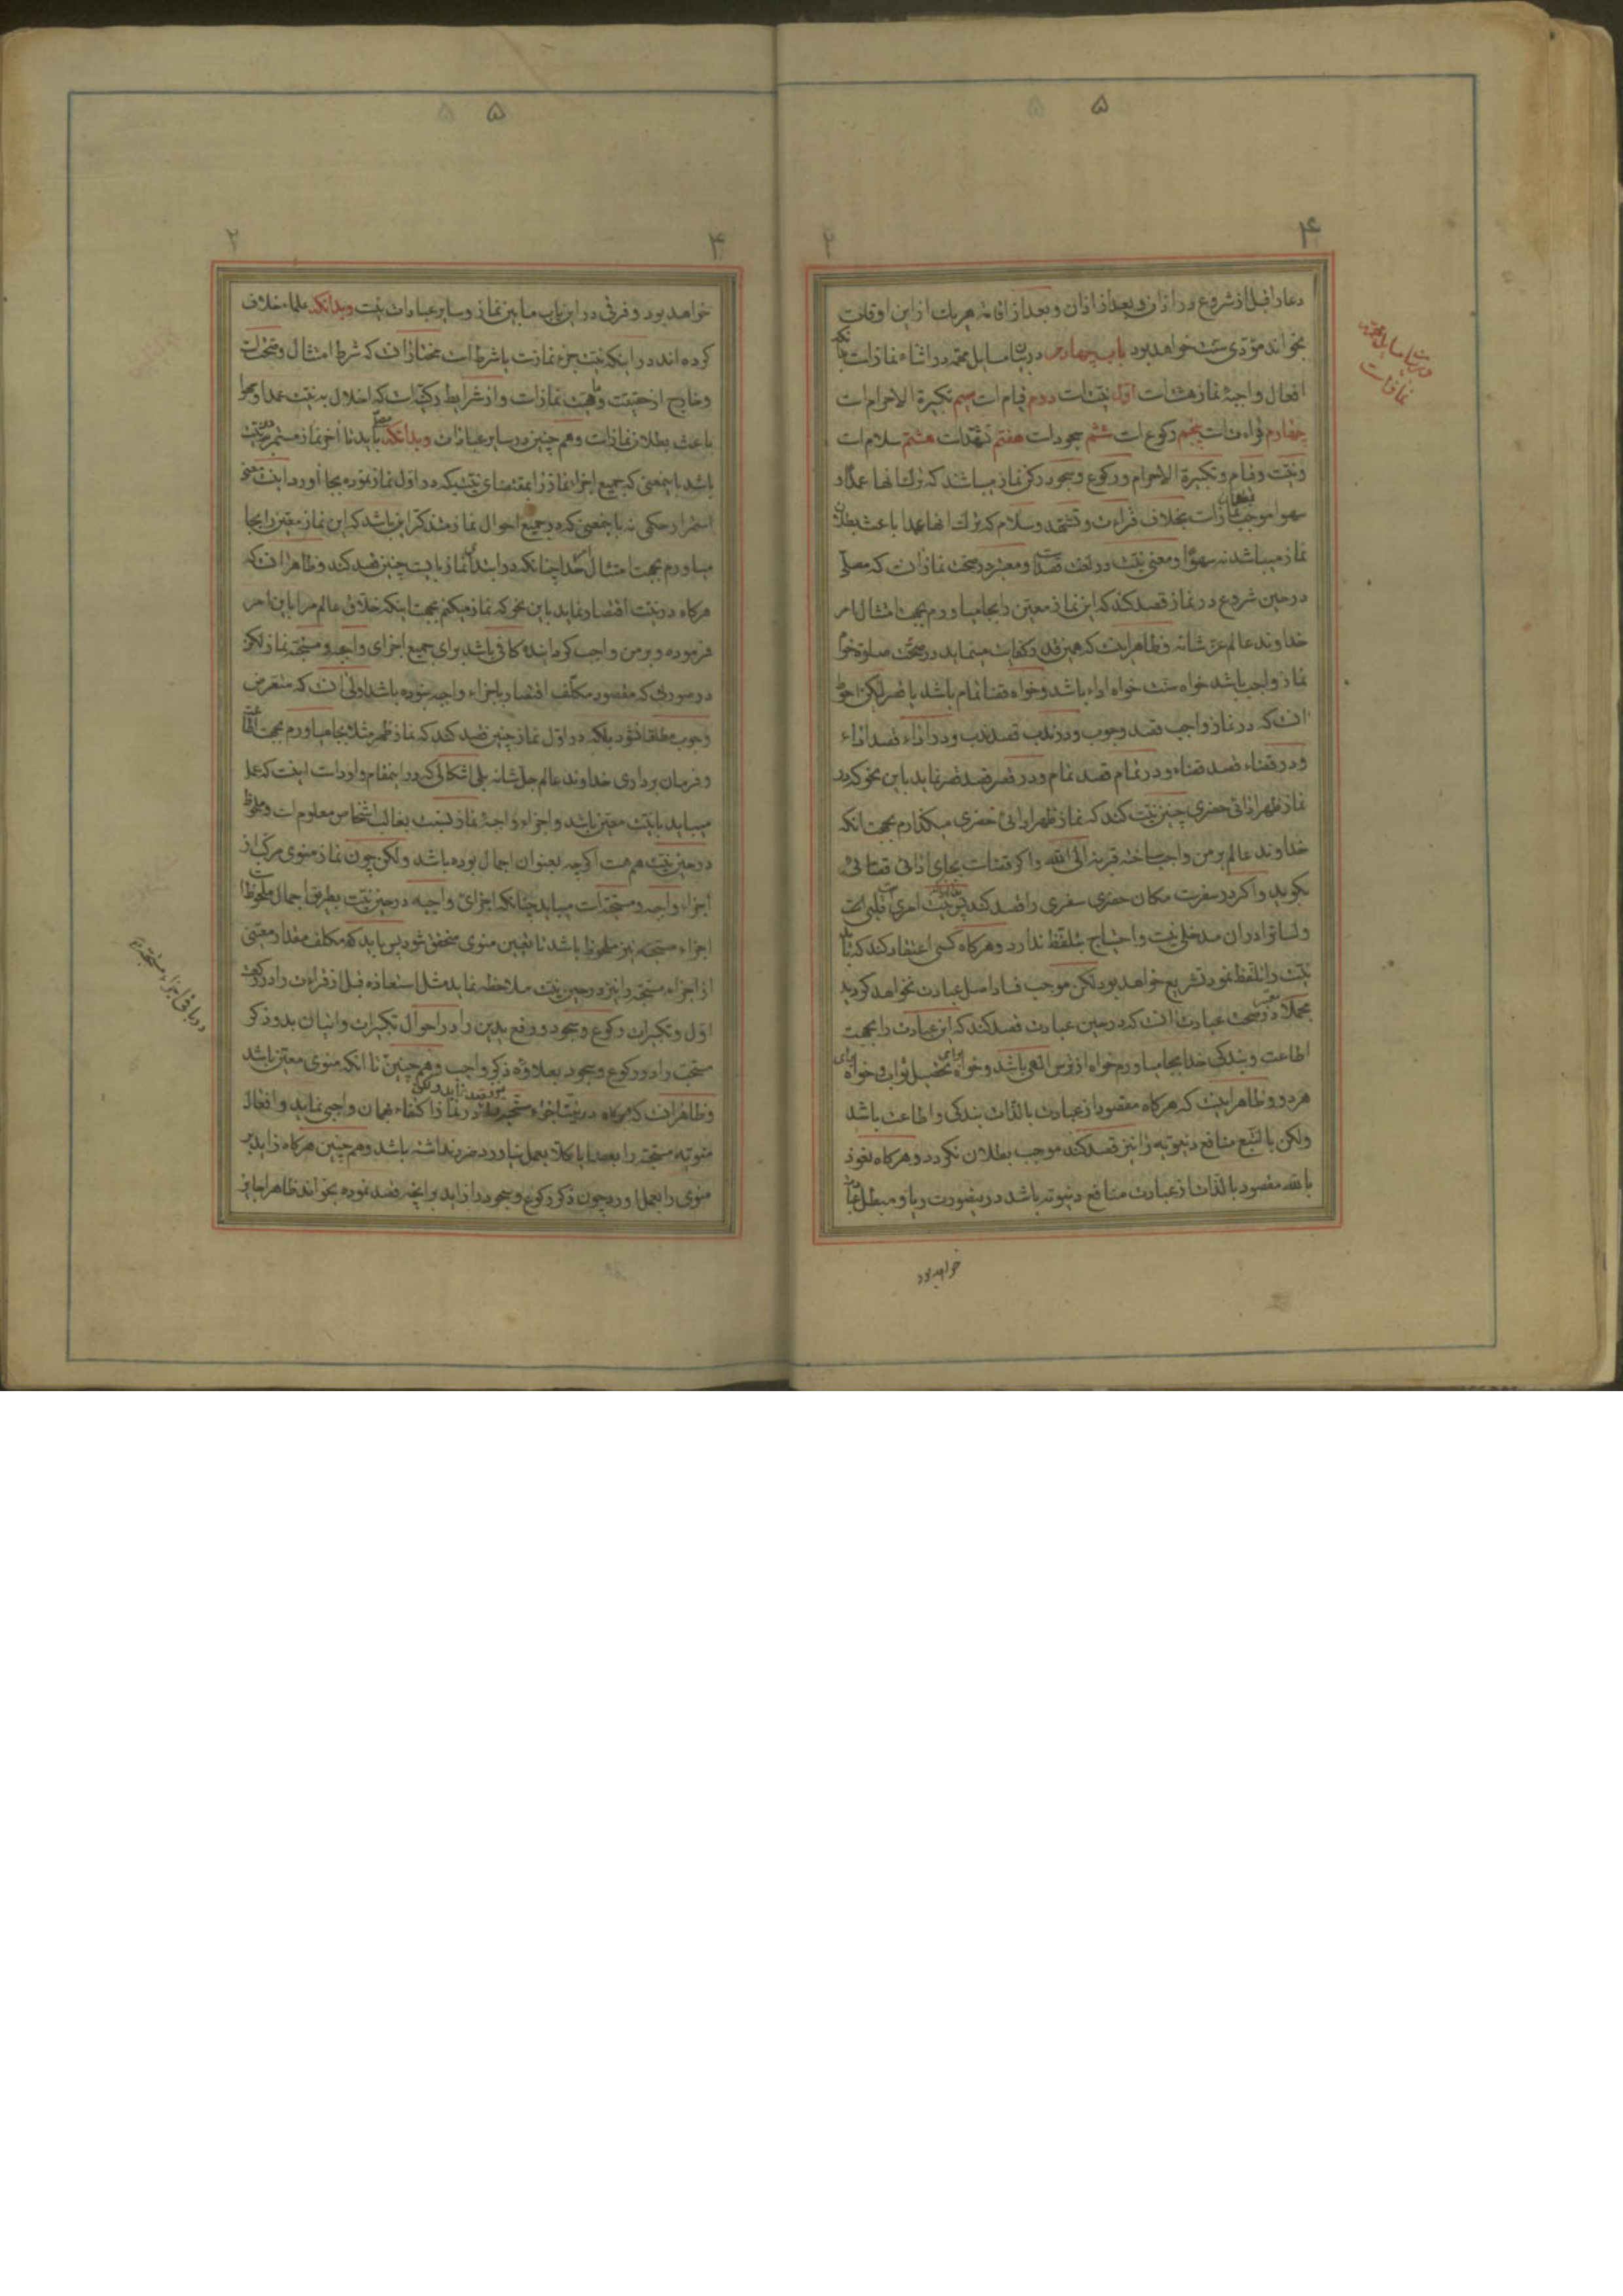 ۵
۴
۲
دعا را قبل از شروع در اذان و بعد از اذان و بعد از اقامه هر یك از این اوقات
بخواند مؤدی سنت خواهد بود باب چهارم در بیان مسایل مهمه در اثناء نماز است بدانكه
افعال واجبهٔ نماز هشت است اول نیت است دوم قیام است سیم تكبیرة الاحرام است
چهارم قراءت است پنجم ركوع است ششم سجود است هفتم تشهد است هشتم سلام است
و نیت و قیام و تكبیرة الاحرام و ركوع و سجود ركن نماز میباشد كه ترك انها عمدا و
سهوا موجب بطلان نماز است بخلاف قراءت و تشهد و سلام كه ترك انها عمدا باعث بطلان
نماز میباشد نه سهوا و معنی نیت در لغت قصد است و معتبر در صحت نماز ان است كه مصلی
در حین شروع در نماز قصد كند كه این نماز معین را بجا میاورم بجهت امتثال امر
خداوند عالم عز شانه و ظاهر اینست كه همین قدر كفایت مینماید در صحت صلوة خواه
نماز واجب باشد خواه سنت خواه اداء باشد و خواه قضا تمام باشد یا قصر لیكن احوط
انست كه در نماز واجب قصد وجوب و در ندب قصد ندب و در اداء قصد اداء
و در قضاء قصد قضاء و در تمام قصد تمام و در قصر قصد قصر نماید باین نحو كه در
نماز ظهر ادائی حضری چنین نیت كند كه نماز ظهر ادائی حضری میگذارم بجهت انكه
خداوند عالم بر من واجب ساخته قربة الی الله و اگر قضاست بجای ادائی قضائی
بگوید و اگر در سفرست مكان حضری سفری را قصد كند بدانكه نیت امری است قلبی
و لسانرا در ان مدخلی نیست و احتیاج بتلفظ ندارد و هرگاه كسی اعتقاد كند كه باید
نیت را تلفظ نمود تشریع خواهد بود لكن موجب فساد اصل عبادت نخواهد گردید
مجملا معتبر در صحت عبادت ان است كه در حین عبادت قصد كند كه این عبادت را بجهت
اطاعت و بندگی خدا بجا میاورم خواه از ترس الهی باشد و خواه برای تحصیل ثواب و خواه برای
هر دو و ظاهر اینست كه هرگاه مقصود از عبادت بالذات بندگی و اطاعت باشد
و لكن بالتبع منافع دنیویه را نیز قصد كند موجب بطلان نگردد و هرگاه نعوذ
بالله مقصود بالذات از عبادت منافع دنیویه باشد در اینصورت ریا و مبطل عبادت
خواهد بود
در بیان مسایل مهمه
نماز است
۵
۴
۲
خواهد بود و فرقی در این باب مابین نماز و سایر عبادات نیست و بدانكه علماء خلاف
كرده اند در اینكه نیت جزء نماز است یا شرط است مختار ان كه شرط امتثال و صحت است
و خارج از حقیقت و ماهیت نماز است و از شرایط ركنیه است كه اخلال به نیت عمدا و سهوا
باعث بطلان نماز است و هم چنین در سایر عبادات و بدانكه باید تا آخر نماز مستمر بر نیت
باشد باینمعنی كه جمیع اجزاء نماز را بمقتضای نیتیكه در اول نماز نموده بجا آورد اینست معنی
استمرار حكمی نه باینمعنی كه در جمیع احوال نماز متذكر این باشد كه این نماز معین را بجا
میاورم بجهت امتثال امر خدا چنانكه در ابتدای نماز بایست چنین قصد كند و ظاهر ان كه
هرگاه در نیت اقتصار نماید باین نحو كه نماز میكنم بجهت اینكه خلاق عالم مرا باین امر
فرموده و بر من واجب گردانیده كافی باشد برای جمیع اجزای واجبه و مستحبه نماز لكن
در صورتی كه مقصود مكلف اقتصار باجزاء واجبه بوده باشد اولی ان كه متعرض
وجوب مطلقا نشود بلكه در اول نماز چنین قصد كند كه نماز ظهر مثلا بجا میاورم بجهت اطاعت
و فرمان برداری خداوند عالم جل شانه بلی اشكالی كه در اینمقام وارد است اینست كه عمل
میباید با نیت معین باشد و اجزاء واجبهٔ نماز نسبت بغالب اشخاص معلوم است و ملحوظ
در حین نیت هم هست اگرچه بعنوان اجمال بوده باشد و لكن چون نماز منوی مركب از
اجزاء واجبه و مستحبه است میباید چنانكه اجزای واجبه در حین نیت بطریق اجمال ملحوظ است
اجزاء مستحبه نیز ملحوظ باشد تا تعیین منوی متحقق شود پس باید كه مكلف مقدار معینی
از اجزاء مستحبه را نیز در حین نیت ملاحظه نماید مثل استعاذه قبل از قراءت را در ركعت
اول و تكبیرات ركوع و سجود و رفع یدین را در احوال تكبیرات و اتیان بدو ذكر
مستحب را در ركوع و سجود بعلاوه ذكر واجب و هم چنین تا انكه منوی معین باشد
و ظاهر انست كه هرگاه در نیت اجزاء مستحبه در نماز اكتفاء بهمان واجبی نماید و افعال
منویه مستحبه را بعضا یا كلا بعمل نیاورد ضرر نداشته باشد و هم چنین هرگاه زاید بر
منوی را بعمل اورد چون ذكر ركوع و سجود را زاید بر انچه قصد نموده بخواند ظاهرا جایز